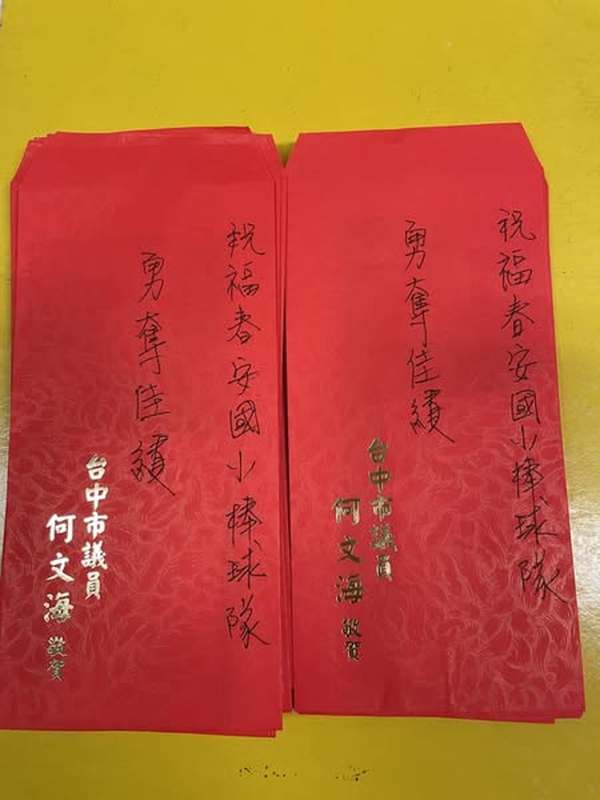 祝福春安國小棒球隊
勇奪佳績
台中市議員
何文海 敬賀
祝福春安國小棒球隊
勇奪佳績
台中市議員
何文海 敬賀